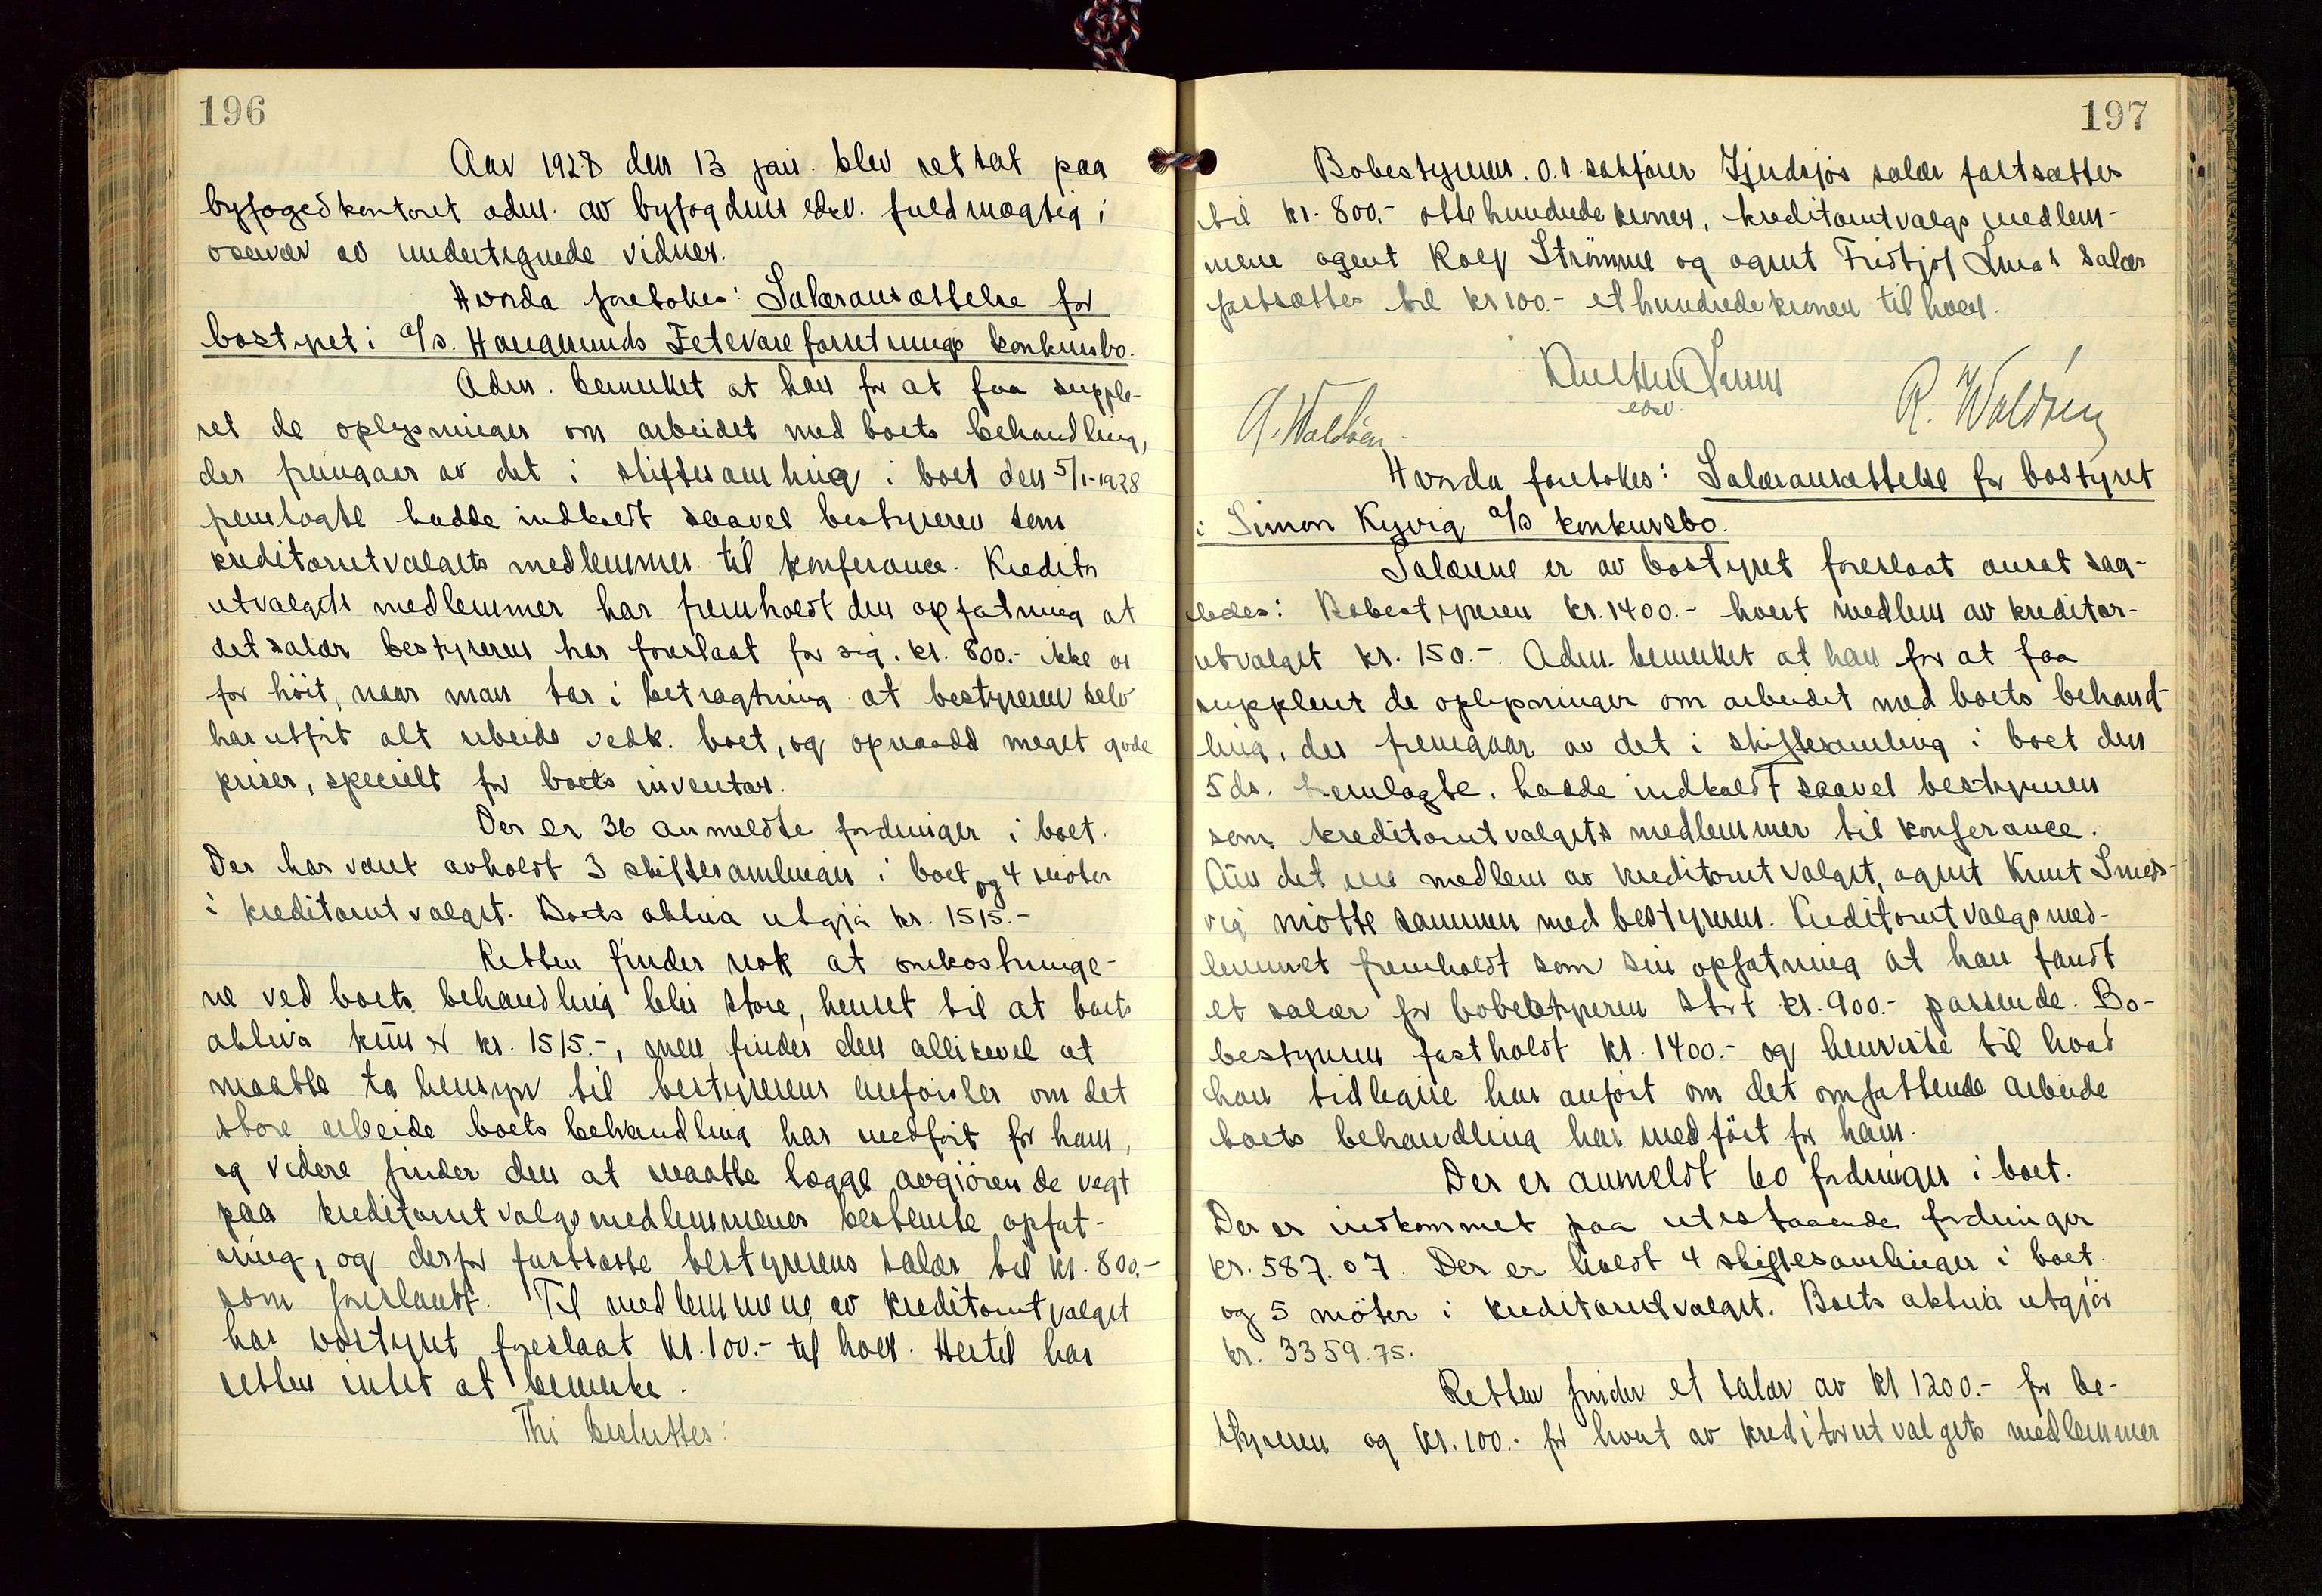 196
Aar 1928 den 13 jan. blev ret sat paa
byfogedkontoret adm. av byfogdens edsv. fuldmægtig i
overvær av undertegnede vidner.
Hvorda foretokes: Salæransættelse for
bostyret i A/S. Haugesunds Fetevareforretnings konkursbo.
Adm. bemerket at han for at faa supple-
ret de oplysninger om arbeidet med boets behandling,
der fremgaar av det i skiftesamling i boet den 5/1-1928
fremlagte hadde indkaldt saavel bestyreren som
kreditorutvalgets medlemmer til konferance. Kreditor
utvalgets medlemmer har fremholdt den opfatning at
det salær bestyreren har foreslaat for sig, kr. 800.- ikke er
for höit, naar man tar i betragtning at bestyreren selv
har utfört alt arbeide vedk. boet, og opnaadd meget gode
priser, specielt for boets inventar.
Der er 36 anmeldte fordringer i boet.
Der har været avholdt 3 skiftesamlinger i boet og 4 möter
i kreditorutvalget. Boets aktiva utgjör kr. 1515.-
Retten finder nok at omkostninge-
ne ved boets behandling blir store, henset til at boets
aktiva kun er kr. 1515.-, men finder den allikevel at
maatte ta hensyn til bestyrerens anförsler om det
store arbeide boets behandling har medfört for ham,
og videre finder den at maatte lægge avgjörende vegt
paa kreditorutvalgsmedlemmenes bestemte opfat-
ning, og derfor fastsætte bestyrerens salær til kr. 800.-
som foreslaatt. Til medlemmene av kreditorutvalget
har bostyret foreslaat kr. 100.- til hver. Hertil har
retten intet at bemerke.
Thi besluttes:
197
Bobestyreren, o.r.sakförer salær fastsættes
til kr. 800.- otte hundrede kroner, kreditorutvalgs medlem-
mene agent Rolf Strömme og agent Fridtjof salær
fastsættes til kr 100.- et hundrede kroner til hver.
edsv.
A. Waldsen
R. Waldsen
Hvorda foretokes: Salæransættelse for bostyret
i Simon Kyvig A/S konkursbo.
Salærene er av bostyret foreslaat ansat saa-
ledes: Bobestyreren kr. 1400.- hvert medlem av kreditor-
utvalget kr. 150.-. Adm. bemerket at han for at faa
supplert de oplysninger om arbeidet med boets behand-
ling, der fremgaar av det i skiftesamling i boet den
5 ds. fremlagte, hadde indkaldt saavel bestyreren
som kreditorutvalgets medlemmer til konferance.
Kun det ene medlem av kreditorutvalget, agent Knut Smeds-
vig mötte sammen med bestyreren. Kreditorutvalgsmed-
lemmet fremholdt som sin opfatning at han fandt
et salær for bobestyreren stort kr. 900.- passende. Bo-
bestyreren fastholdt kr. 1400.- og henviste til hvad
han tidligere har anfört om det omfattende arbeide
boets behandling har medfört for ham.
Der er anmeldt 60 fordringer i boet.
Der er indkommet paa utestaaende fordringer
kr. 587.07. Der er holdt 4 skiftesamlinger i boet
og 5 möter i kreditorutvalget. Boets aktiva utgjör
kr. 3359.75.
Retten finder et salær av kr 1200.- for be-
styreren og kr. 100.- for hvert av kreditorutvalgets medlemmer